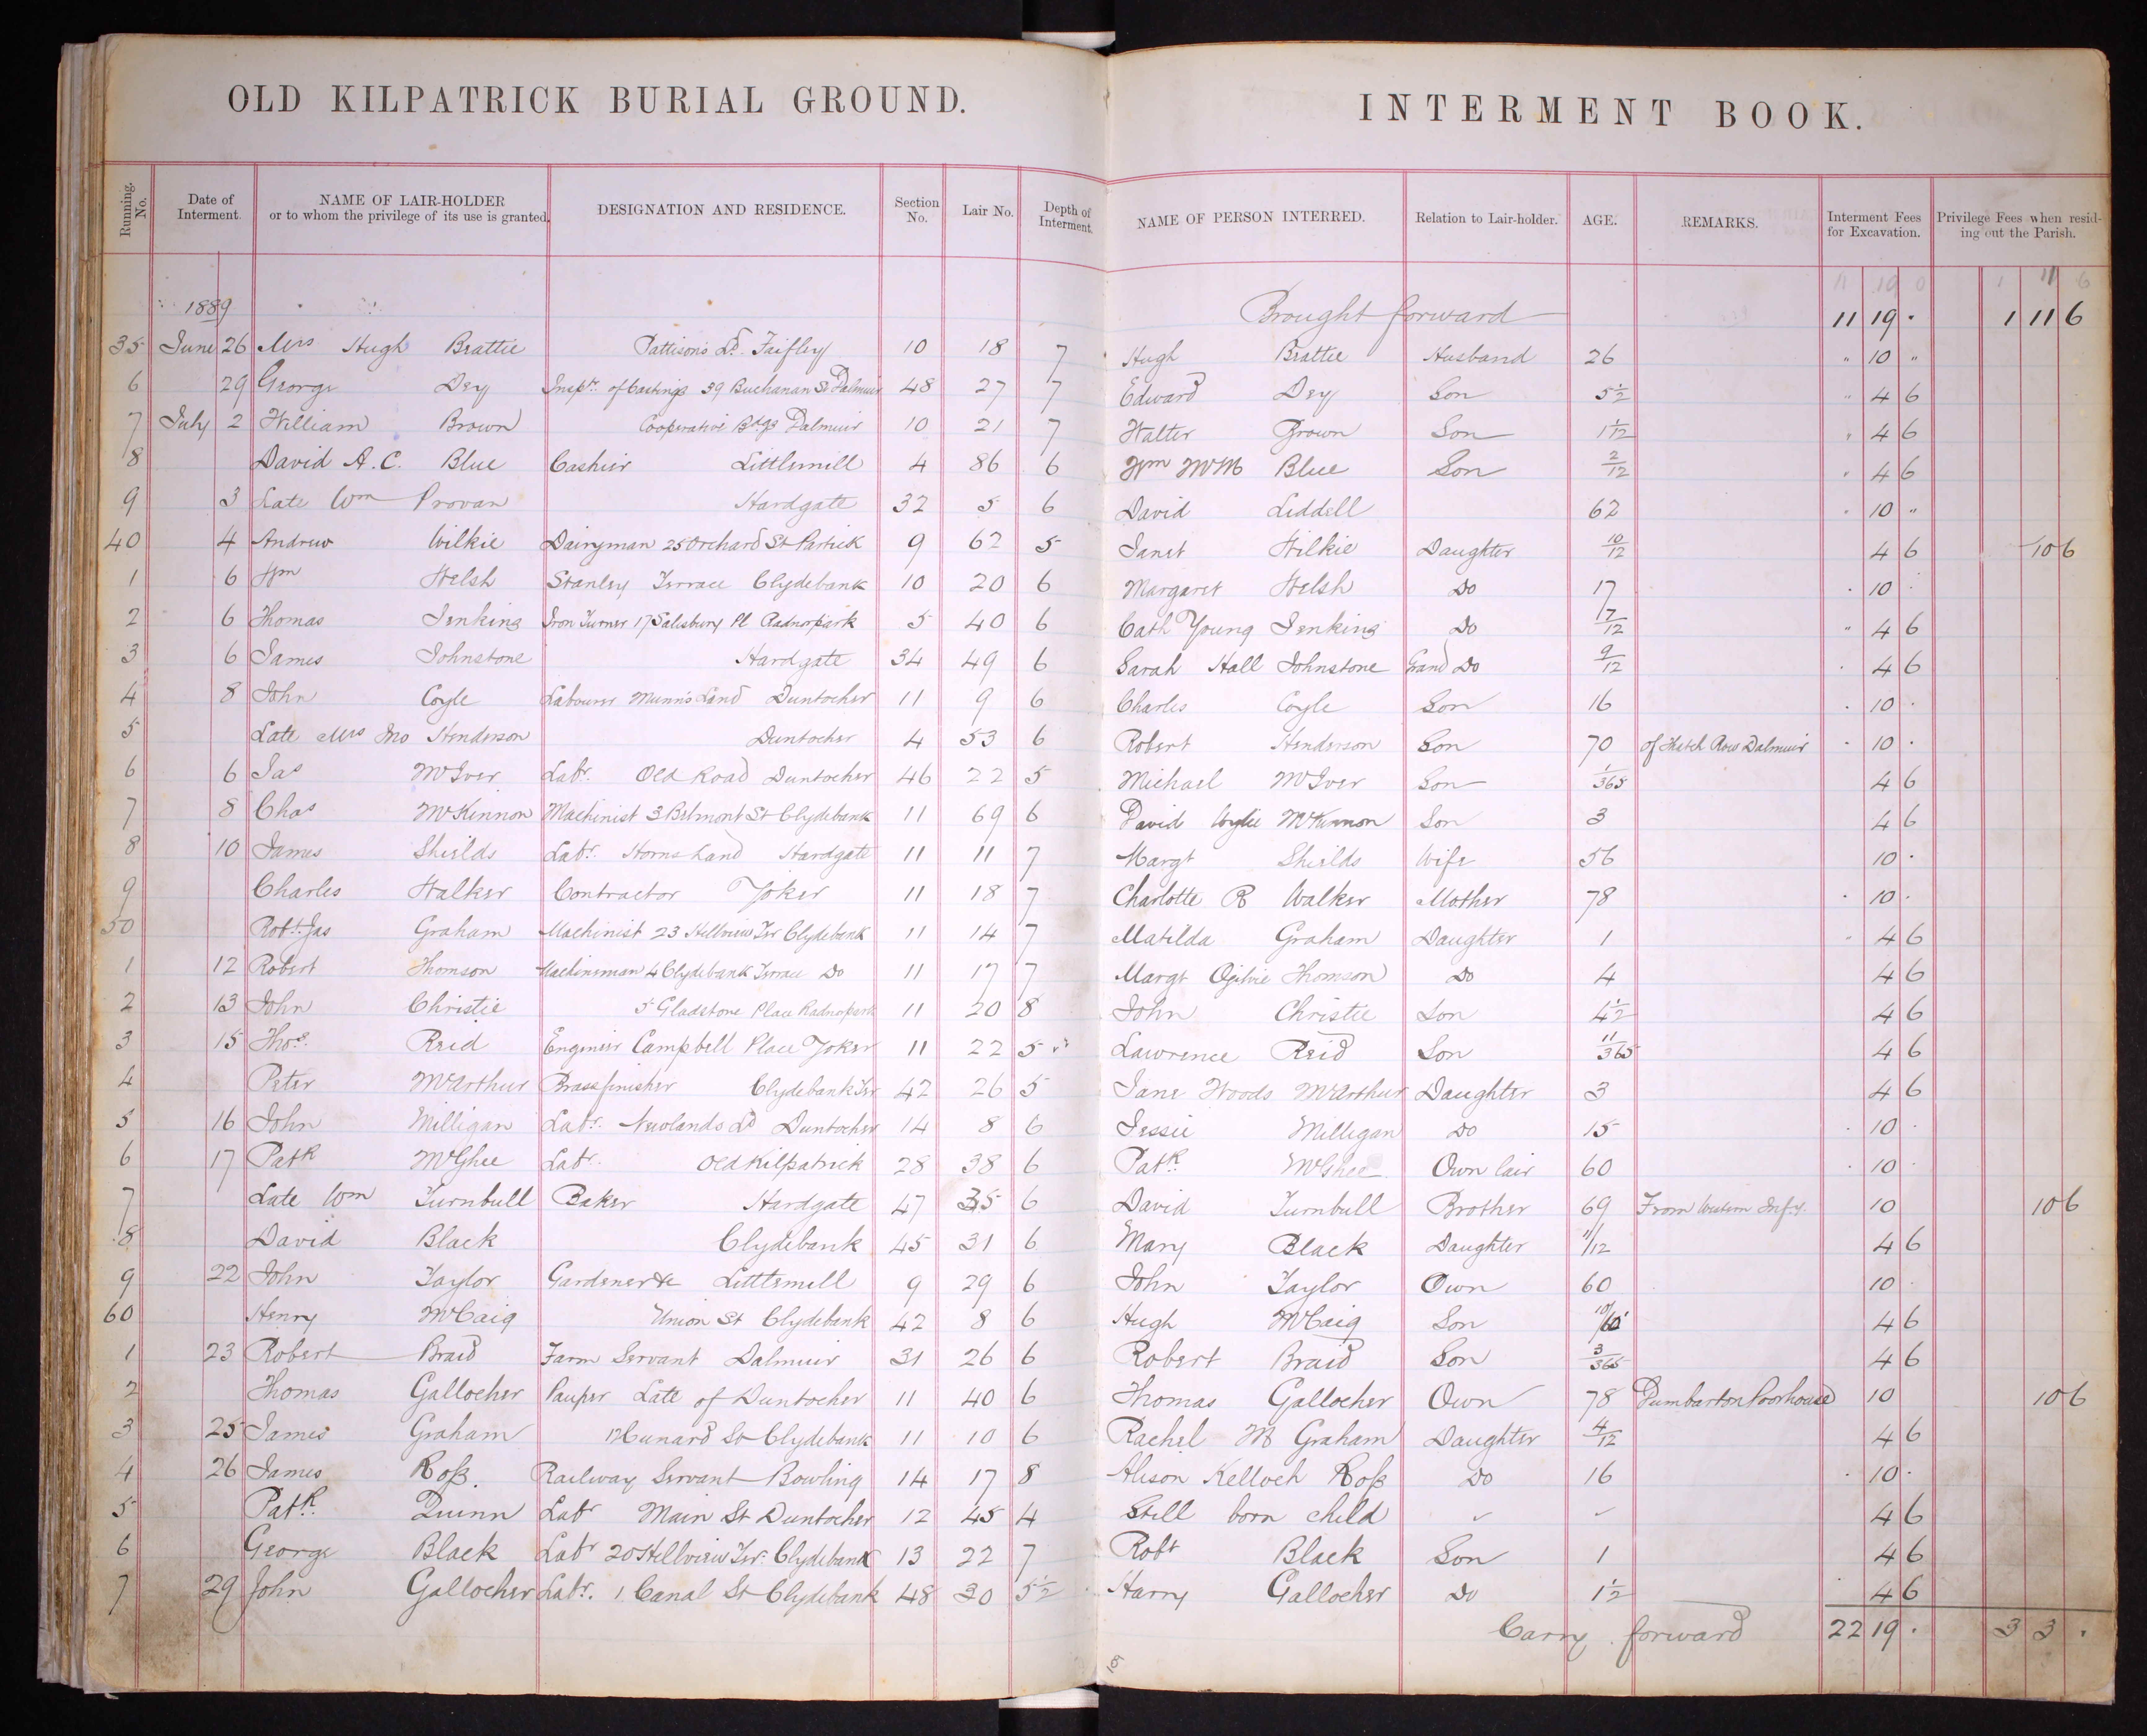 OLD KILPATRICK BURIAL GROUND.
INTERMENT BOOK.
Running No. Date of Interment. NAME OF LAIR-HOLDER or to whom the privilege of its use is granted. DESIGNATION AND RESIDENCE. Section No. Lair No. Depth of Interment. NAME OF PERSON INTERRED. Relation to Lair-holder. AGE. REMARKS. Interment Fees for Excavation. Privilege Fees when residing out the Parish.
11 19 0 1 11 6
1889 Brought forward 11 19 . 1 11 6
35 June 26 Mrs Hugh Brattie Pattison's Ld. Faifley 10 18 7 Hugh Brattie Husband 26 " 10 "
6 29 George Dey Inspr. of Castings 39 Buchanan St Dalmuir 48 27 7 Edward Dey Son 5½ " 4 6
7 July 2 William Brown Cooperative Bdgs Dalmuir 10 21 7 Walter Brown Son 1 1/12 " 4 6
8 David A. C. Blue Cashier Littlemill 4 86 6 Wm McM Blue Son 2/12 " 4 6
9 3 Late Wm Provan Hardgate 32 5 6 David Liddell 62 " 10 "
40 4 Andrew Wilkie Dairyman 25 Orchard St Partick 9 62 5 Janet Wilkie Daughter 10/12 4 6 10 6
1 6 Wm Welsh Stanley Terrace Clydebank 10 20 6 Margaret Welsh Do 17 . 10 .
2 6 Thomas Jenkins Iron Turner 17 Salisbury Pl Radnorpark 5 40 6 Cath Young Jenkins Do 7/12 " 4 6
3 6 James Johnstone Hardgate 34 49 6 Sarah Hall Johnstone Grand Do 9/12 . 4 6
4 8 John Coyle Labourer Munn's Land Duntocher 11 9 6 Charles Coyle Son 16 . 10 .
5 Late Mrs Jno Henderson Duntocher 4 53 6 Robert Henderson Son 70 of Thatch Row Dalmuir . 10 .
6 6 Jas McIver Labr. Old Road Duntocher 46 22 5 Michael McIver Son 1/365 4 6
7 8 Chas McKinnon Machinist 3 Belmont St Clydebank 11 69 6 David Wylie McKinnon Son 3 4 6
8 10 James Shields Labr. Horns Land Hardgate 11 11 7 Margt Shields Wife 56 10 .
9 Charles Walker Contractor Yoker 11 18 7 Charlotte R Walker Mother 78 . 10 .
50 Robt. Jas Graham Machinist 23 Hillview Ter Clydebank 11 14 7 Matilda Graham Daughter 1 4 6
1 12 Robert Thomson Machineman 4 Clydebank Terrace Do 11 17 7 Margt Ogilvie Thomson Do 4 4 6
2 13 John Christie 5 Gladstone Place Radnorpark 11 20 8 John Christie Son 4½ 4 6
3 15 Thos. Reid Engineer Campbell Place Yoker 11 22 5 Lawrence Reid Son 11/365 4 6
4 Peter McArthur Brassfinisher Clydebank Ter 42 26 5 Jane Woods McArthur Daughter 3 4 6
5 16 John Milligan Labr. Newlands Ld Duntocher 14 8 6 Jessie Milligan Do 15 . 10 .
6 17 Patk McGhee Labr. Old Kilpatrick 28 38 6 Patk. McGhee Own lair 60 . 10 .
7 Late Wm Turnbull Baker Hardgate 47 35 6 David Turnbull Brother 69 From Western Infy. 10 10 6
8 David Black Clydebank 45 31 6 Mary Black Daughter 11/12 4 6
9 22 John Taylor Gardener &c Littlemill 9 29 6 John Taylor Own 60 10 .
60 Henry McCaig Union St Clydebank 42 8 6 Hugh McCaig Son 4 6
1 23 Robert Braid Farm Servant Dalmuir 31 26 6 Robert Braid Son 3/365 4 6
2 Thomas Gallocher Pauper Late of Duntocher 11 40 6 Thomas Gallocher Own 78 Dumbarton Poorhouse 10 10 6
3 25 James Graham 12 Cunard St Clydebank 11 10 6 Rachel M Graham Daughter 4/12 4 6
4 26 James Roſs. Railway Servant Bowling 14 17 8 Alison Kelloch Roſs Do 16 . 10 .
5 Patk. Quinn Labr Main St Duntocher 12 45 4 Still born child 4 6
6 George Black Labr 20 Hillview Ter. Clydebank 13 22 7 Robt Black Son 1 4 6
7 29 John Gallocher Labr. 1 Canal St Clydebank 48 30 5½ Harry Gallocher Do 1½ 4 6
Carry forward 22 19 . 3 3 .